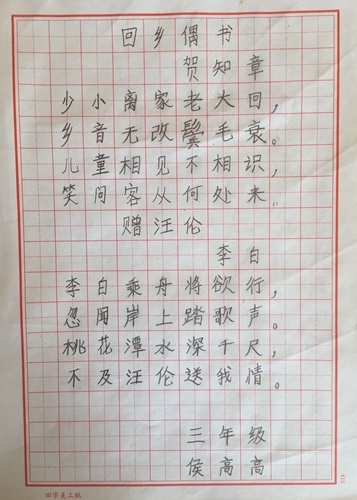 回乡偶书
贺知章
少小离家老大回，
乡音无改鬓毛衰。
儿童相见不相识，
笑问客从何处来。
赠汪伦
李白
李白乘舟将欲行，
忽闻岸上踏歌声。
桃花潭水深千尺，
不及汪伦送我情。
三年级
侯高高